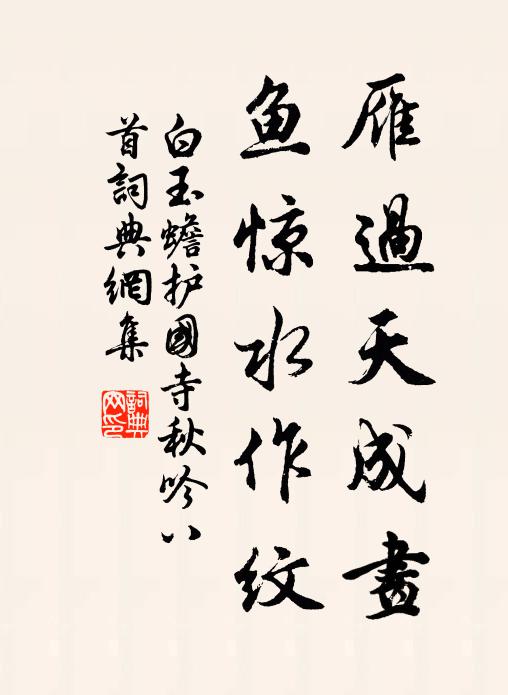 雁過天成畫
鱼惊水作紋
白玉蟾护國寺秋吟八
首詞典網集
詞典网印